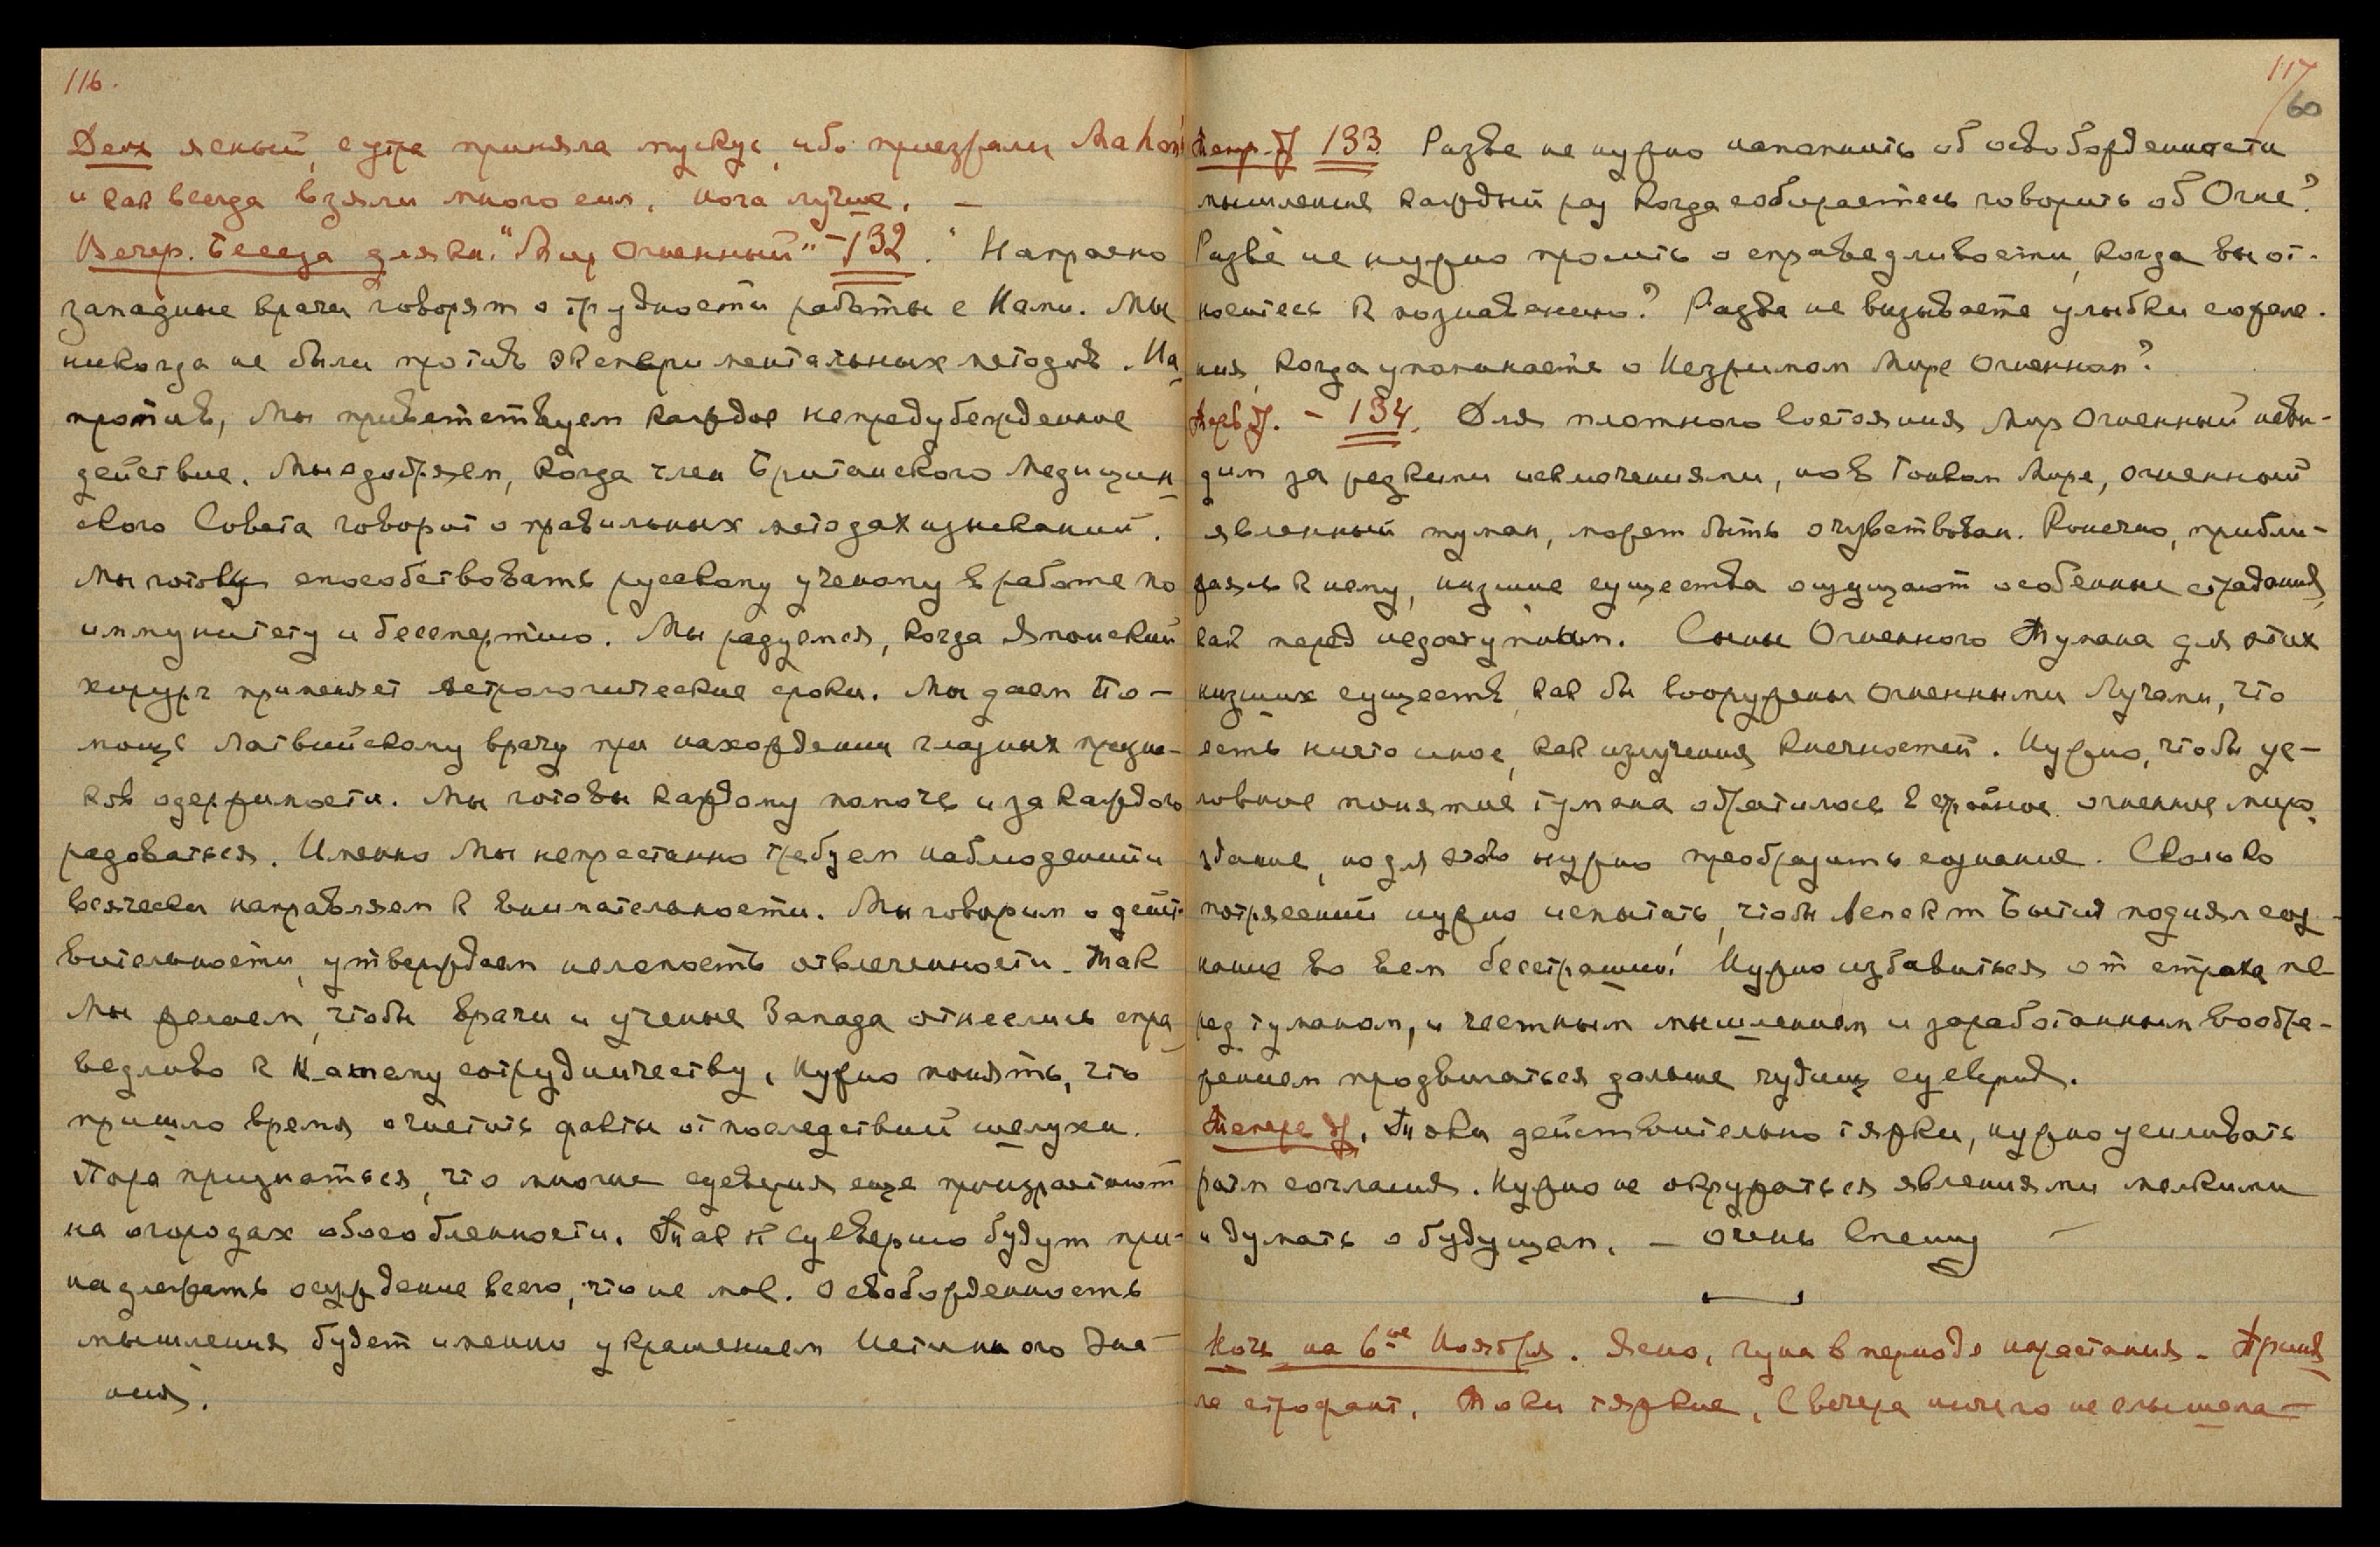 116.
День ясный, с утра приняла мускус, ибо приезжали Mahon
и как всегда взяли много сил. Нога лучше. —
Вечер. Беседа для кн. "Мир Огненный" — 132. "Напрасно
западные врачи говорят о трудности работы с Нами. Мы
никогда не были против экспериментальных методов. На-
против, Мы приветствуем каждое непредубежденное
действие. Мы одобряем, когда член Британского Медицин-
ского Совета говорит о правильных методах изысканий.
Мы готовы способствовать русскому ученому в работе по
иммунитету и бессмертию. Мы радуемся, когда Японский
хирург применяет астрологические сроки. Мы даем По-
мощь Латвийскому врачу при нахождении глазных призна-
ков одержимости. Мы готовы каждому помочь и за каждого
радоваться. Именно Мы непрестанно требуем наблюдений и
всячески направляем к внимательности. Мы говорим о дейст-
вительности, утверждаем нелепость отвлеченности. Так
Мы желаем, чтобы врачи и ученые Запада отнеслись спра-
ведливо к Нашему сотрудничеству. Нужно понять, что
пришло время очистить факты от последствий шелухи.
Пора признаться, что многие суеверия еще произрастают
на огородах обособленности. Так к суеверию будут при-
надлежать осуждение всего, что не мое. Освобожденность
мышления будет именно украшением Истинного Зна-
ния.
117
/60
133 Разве не нужно напомнить об освобожденности
мышления каждый раз когда собираетесь говорить об Огне?
Разве не нужно просить о справедливости, когда вы от-
носитесь к познаванию? Разве не вызываете улыбки сожале-
ния, когда упоминаете о Незримом Мире Огненном?
— 134. Для плотного состояния Мир Огненный неви-
дим за редкими исключениями, но в Тонком Мире, огненный
явленный туман, может быть очувствован. Конечно, прибли-
жаясь к нему, низшие существа ощущают особенные страдания,
как перед недоступным. Сыны Огненного Тумана для этих
низших существ, как бы вооружены Огненными Лучами, что
есть ничто иное, как излучения конечностей. Нужно, чтобы ус-
ловное понятие тумана обратилось в стройное огненное миро-
здание, но для этого нужно преобразить сознание. Сколько
потрясений нужно испытать, чтобы Аспект Бытия поднял соз-
нание во всем бесстрашии! Нужно избавиться от страха пе-
ред туманом, и честным мышлением и заработанным вообра-
жением продвигаться дальше чудищ суеверия.
Токи действительно тяжки, нужно усиливать
ритм согласия. Нужно не окружаться явлениями мелкими
и думать о будущем. — Очень спешу —
Ночь на 6ое Ноября. Ясно, луна в периоде нарастания. Приня-
ла строфант. Токи тяжкие. С вечера ничего не слышала —